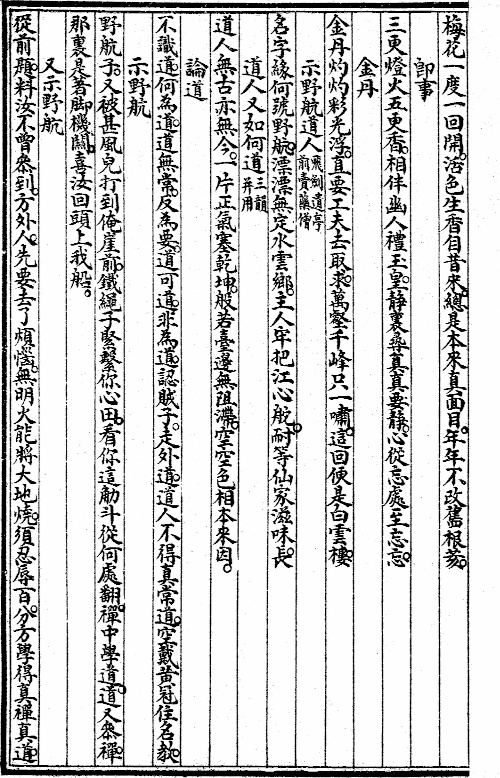 梅花一度一回開。活色生香自昔來。總是本來真面目。年年不改舊根荄。
即事
三更燈火五更香。相伴幽人禮玉皇。靜裏尋真真要靜。心從忘處至忘忘。
金丹
金丹灼灼彩光浮。直要工夫去取求。萬壑千峰只一嘯。這回便是白雲樓。
示野航道人
名字緣何號野航。漂漂無定水雲鄉。主人牢把江心舵。耐等仙家滋味長。
道人又如何道三韻并用
道人無古亦無今。一片正氣塞乾坤。般若臺邊無阻滯。空空色相本來因。
論道
不識道何為道。道無常。反為要。道可道。非為道。認賊子。走外道。道人不得真常道。空戴黃冠住名教。
示野航
野航子。又被甚風皃打到俺崖前。鐵繩子緊繫你心田。看你這觔斗從何處翻。禪中學道。道又參禪。
那裏是者脚機關。喜汝回頭上我船。
又示野航
從前題。料汝不曾參到。方外人。先要去了煩惱。無明火能將大地燒。須忍辱百分。方學得真禪真道。